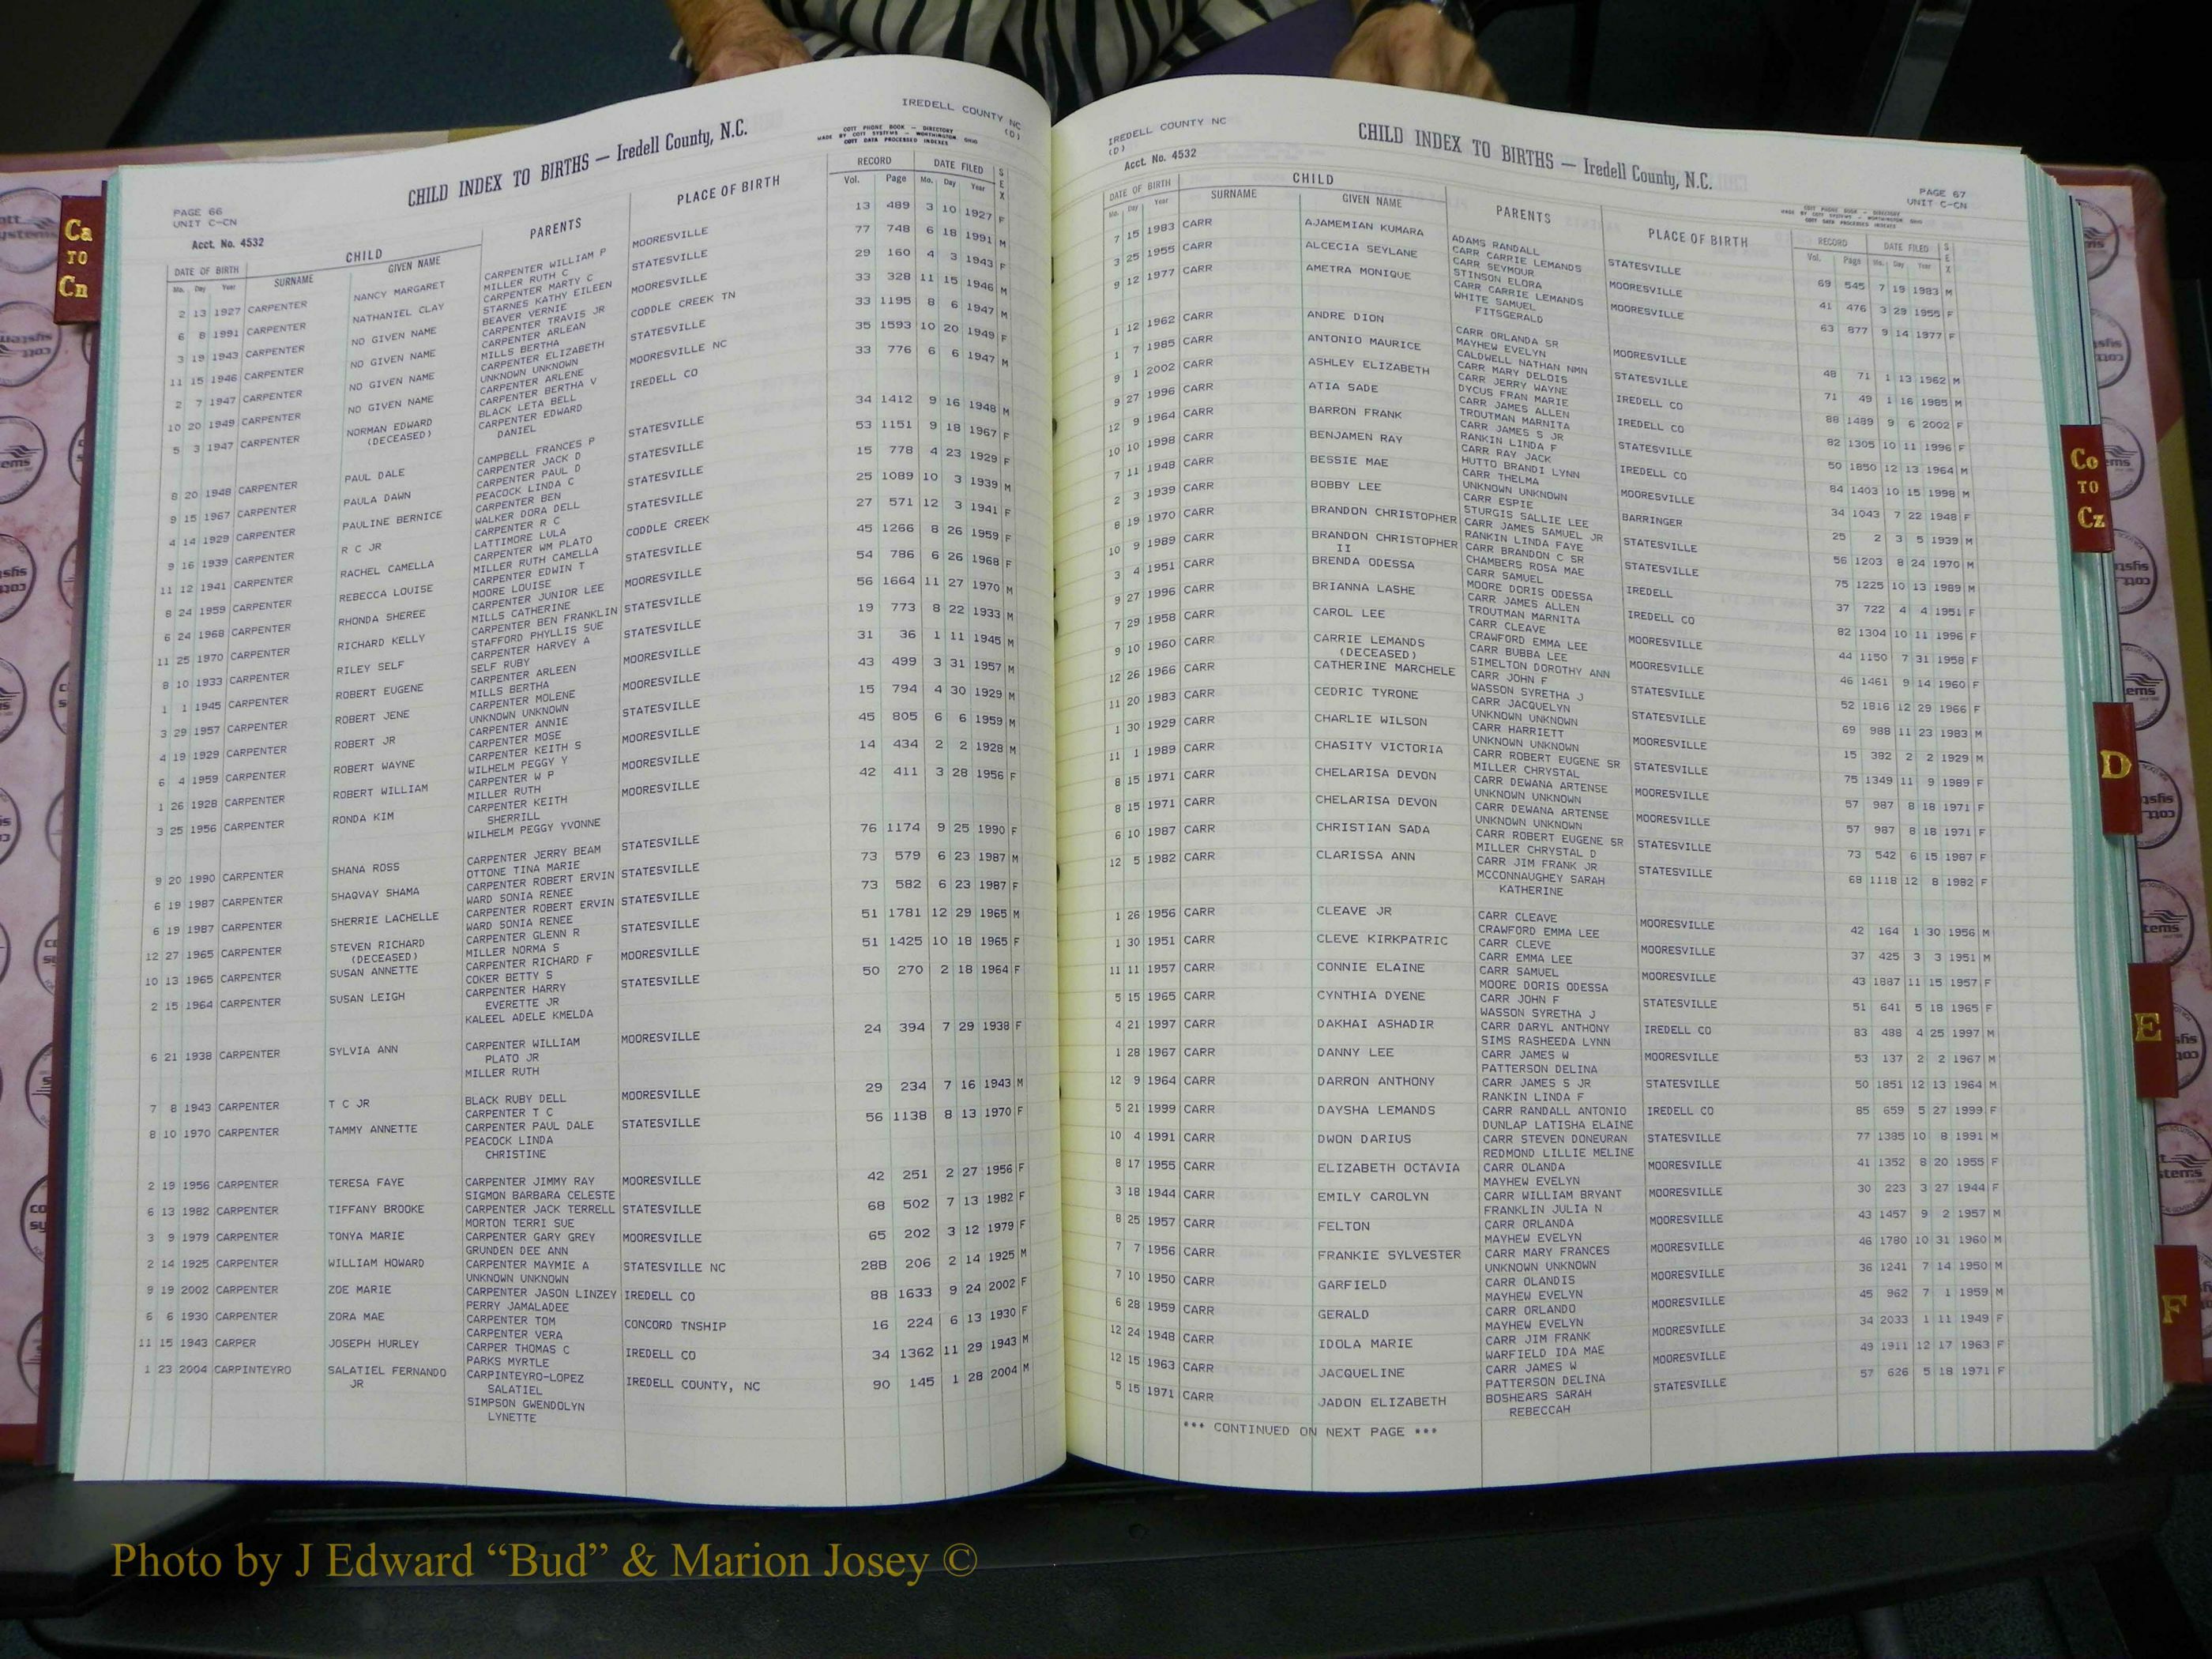 IREDELL COUNTY NC
(D)
CHILD INDEX TO BIRTHS — Iredell County, N.C.
COTT PHONE BOOK — DIRECTORY
MADE BY COTT SYSTEMS — WORTHINGTON OHIO
COTT DATA PROCESSED INDEXES
PAGE 66
UNIT C-CN
Acct. No. 4532
DATE OF BIRTH CHILD PARENTS PLACE OF BIRTH RECORD DATE FILED SEX
Mo. Day Year SURNAME GIVEN NAME Vol. Page Mo. Day Year
2 13 1927 CARPENTER NANCY MARGARET CARPENTER WILLIAM P MOORESVILLE 13 489 3 10 1927 F
MILLER RUTH C
6 8 1991 CARPENTER NATHANIEL CLAY CARPENTER MARTY C STATESVILLE 77 748 6 18 1991 M
STARNES KATHY EILEEN
3 19 1943 CARPENTER NO GIVEN NAME BEAVER VERNIE MOORESVILLE 29 160 4 3 1943 F
CARPENTER TRAVIS JR
11 15 1946 CARPENTER NO GIVEN NAME CARPENTER ARLEAN CODDLE CREEK TN 33 328 11 15 1946 M
MILLS BERTHA
2 7 1947 CARPENTER NO GIVEN NAME CARPENTER ELIZABETH STATESVILLE 33 1195 8 6 1947 M
UNKNOWN UNKNOWN
10 20 1949 CARPENTER NO GIVEN NAME CARPENTER ARLENE MOORESVILLE NC 35 1593 10 20 1949 F
CARPENTER BERTHA V
5 3 1947 CARPENTER NORMAN EDWARD BLACK LETA BELL IREDELL CO 33 776 6 6 1947 M
(DECEASED) CARPENTER EDWARD
DANIEL
8 20 1948 CARPENTER PAUL DALE CAMPBELL FRANCES P STATESVILLE 34 1412 9 16 1948 M
CARPENTER JACK D
9 15 1967 CARPENTER PAULA DAWN CARPENTER PAUL D STATESVILLE 53 1151 9 18 1967 F
PEACOCK LINDA C
4 14 1929 CARPENTER PAULINE BERNICE CARPENTER BEN STATESVILLE 15 778 4 23 1929 F
WALKER DORA DELL
9 16 1939 CARPENTER R C JR CARPENTER R C STATESVILLE 25 1089 10 3 1939 M
LATTIMORE LULA
11 12 1941 CARPENTER RACHEL CAMELLA CARPENTER WM PLATO CODDLE CREEK 27 571 12 3 1941 F
MILLER RUTH CAMELLA
8 24 1959 CARPENTER REBECCA LOUISE CARPENTER EDWIN T STATESVILLE 45 1266 8 26 1959 F
MOORE LOUISE
6 24 1968 CARPENTER RHONDA SHEREE CARPENTER JUNIOR LEE MOORESVILLE 54 786 6 26 1968 F
MILLS CATHERINE
11 25 1970 CARPENTER RICHARD KELLY CARPENTER BEN FRANKLIN STATESVILLE 56 1664 11 27 1970 M
STAFFORD PHYLLIS SUE
8 10 1933 CARPENTER RILEY SELF CARPENTER HARVEY A STATESVILLE 19 773 8 22 1933 M
SELF RUBY
1 1 1945 CARPENTER ROBERT EUGENE CARPENTER ARLEEN MOORESVILLE 31 36 1 11 1945 M
MILLS BERTHA
3 29 1957 CARPENTER ROBERT JENE CARPENTER MOLENE MOORESVILLE 43 499 3 31 1957 M
UNKNOWN UNKNOWN
4 19 1929 CARPENTER ROBERT JR CARPENTER ANNIE STATESVILLE 15 794 4 30 1929 M
CARPENTER MOSE
6 4 1959 CARPENTER ROBERT WAYNE CARPENTER KEITH S MOORESVILLE 45 805 6 6 1959 M
WILHELM PEGGY Y
1 26 1928 CARPENTER ROBERT WILLIAM CARPENTER W P MOORESVILLE 14 434 2 2 1928 M
MILLER RUTH
3 25 1956 CARPENTER RONDA KIM CARPENTER KEITH MOORESVILLE 42 411 3 28 1956 F
SHERRILL
WILHELM PEGGY YVONNE
9 20 1990 CARPENTER SHANA ROSS CARPENTER JERRY BEAM STATESVILLE 76 1174 9 25 1990 F
OTTONE TINA MARIE
6 19 1987 CARPENTER SHAQVAY SHAMA CARPENTER ROBERT ERVIN STATESVILLE 73 579 6 23 1987 M
WARD SONIA RENEE
6 19 1987 CARPENTER SHERRIE LACHELLE CARPENTER ROBERT ERVIN STATESVILLE 73 582 6 23 1987 F
WARD SONIA RENEE
12 27 1965 CARPENTER STEVEN RICHARD CARPENTER GLENN R STATESVILLE 51 1781 12 29 1965 M
(DECEASED) MILLER NORMA S
10 13 1965 CARPENTER SUSAN ANNETTE CARPENTER RICHARD F MOORESVILLE 51 1425 10 18 1965 F
COKER BETTY S
2 15 1964 CARPENTER SUSAN LEIGH CARPENTER HARRY STATESVILLE 50 270 2 18 1964 F
EVERETTE JR
KALEEL ADELE KMELDA
6 21 1938 CARPENTER SYLVIA ANN CARPENTER WILLIAM MOORESVILLE 24 394 7 29 1938 F
PLATO JR
MILLER RUTH
7 8 1943 CARPENTER T C JR BLACK RUBY DELL MOORESVILLE 29 234 7 16 1943 M
CARPENTER T C
8 10 1970 CARPENTER TAMMY ANNETTE CARPENTER PAUL DALE STATESVILLE 56 1138 8 13 1970 F
PEACOCK LINDA
CHRISTINE
2 19 1956 CARPENTER TERESA FAYE CARPENTER JIMMY RAY MOORESVILLE 42 251 2 27 1956 F
SIGMON BARBARA CELESTE
6 13 1982 CARPENTER TIFFANY BROOKE CARPENTER JACK TERRELL STATESVILLE 68 502 7 13 1982 F
MORTON TERRI SUE
3 9 1979 CARPENTER TONYA MARIE CARPENTER GARY GREY MOORESVILLE 65 202 3 12 1979 F
GRUNDEN DEE ANN
2 14 1925 CARPENTER WILLIAM HOWARD CARPENTER MAYMIE A STATESVILLE NC 28B 206 2 14 1925 M
UNKNOWN UNKNOWN
9 19 2002 CARPENTER ZOE MARIE CARPENTER JASON LINZEY IREDELL CO 88 1633 9 24 2002 F
PERRY JAMALADEE
6 6 1930 CARPENTER ZORA MAE CARPENTER TOM CONCORD TNSHIP 16 224 6 13 1930 F
CARPENTER VERA
11 15 1943 CARPER JOSEPH HURLEY CARPER THOMAS C IREDELL CO 34 1362 11 29 1943 M
PARKS MYRTLE
1 23 2004 CARPINTEYRO SALATIEL FERNANDO CARPINTEYRO-LOPEZ IREDELL COUNTY, NC 90 145 1 28 2004 M
JR SALATIEL
SIMPSON GWENDOLYN
LYNETTE
IREDELL COUNTY NC
(D)
Acct. No. 4532
CHILD INDEX TO BIRTHS — Iredell County, N.C.
PAGE 67
UNIT C-CN
COTT PHONE BOOK — DIRECTORY
MADE BY COTT SYSTEMS — WORTHINGTON OHIO
COTT DATA PROCESSED INDEXES
DATE OF BIRTH CHILD PARENTS PLACE OF BIRTH RECORD DATE FILED SEX
Mo. Day Year SURNAME GIVEN NAME Vol. Page Mo. Day Year
7 15 1983 CARR AJAMEMIAN KUMARA ADAMS RANDALL STATESVILLE 69 545 7 19 1983 M
CARR CARRIE LEMANDS
3 25 1955 CARR ALCECIA SEYLANE CARR SEYMOUR MOORESVILLE 41 476 3 29 1955 F
STINSON ELORA
9 12 1977 CARR AMETRA MONIQUE CARR CARRIE LEMANDS MOORESVILLE 63 877 9 14 1977 F
WHITE SAMUEL
FITSGERALD
1 12 1962 CARR ANDRE DION CARR ORLANDA SR MOORESVILLE 48 71 1 13 1962 M
MAYHEW EVELYN
1 7 1985 CARR ANTONIO MAURICE CALDWELL NATHAN NMN STATESVILLE 71 49 1 16 1985 M
CARR MARY DELOIS
9 1 2002 CARR ASHLEY ELIZABETH CARR JERRY WAYNE IREDELL CO 88 1489 9 6 2002 F
DYCUS FRAN MARIE
9 27 1996 CARR ATIA SADE CARR JAMES ALLEN IREDELL CO 82 1305 10 11 1996 F
TROUTMAN MARNITA
12 9 1964 CARR BARRON FRANK CARR JAMES S JR STATESVILLE 50 1850 12 13 1964 M
RANKIN LINDA F
10 10 1998 CARR BENJAMEN RAY CARR RAY JACK IREDELL CO 84 1403 10 15 1998 M
HUTTO BRANDI LYNN
7 11 1948 CARR BESSIE MAE CARR THELMA MOORESVILLE 34 1043 7 22 1948 F
UNKNOWN UNKNOWN
2 3 1939 CARR BOBBY LEE CARR ESPIE BARRINGER 25 2 3 5 1939 M
STURGIS SALLIE LEE
8 19 1970 CARR BRANDON CHRISTOPHER CARR JAMES SAMUEL JR STATESVILLE 56 1203 8 24 1970 M
RANKIN LINDA FAYE
10 9 1989 CARR BRANDON CHRISTOPHER CARR BRANDON C SR STATESVILLE 75 1225 10 13 1989 M
II CHAMBERS ROSA MAE
3 4 1951 CARR BRENDA ODESSA CARR SAMUEL IREDELL 37 722 4 4 1951 F
MOORE DORIS ODESSA
9 27 1996 CARR BRIANNA LASHE CARR JAMES ALLEN IREDELL CO 82 1304 10 11 1996 F
TROUTMAN MARNITA
7 29 1958 CARR CAROL LEE CARR CLEAVE MOORESVILLE 44 1150 7 31 1958 F
CRAWFORD EMMA LEE
9 10 1960 CARR CARRIE LEMANDS CARR BUBBA LEE MOORESVILLE 46 1461 9 14 1960 F
(DECEASED) SIMELTON DOROTHY ANN
12 26 1966 CARR CATHERINE MARCHELE CARR JOHN F STATESVILLE 52 1816 12 29 1966 F
WASSON SYRETHA J
11 20 1983 CARR CEDRIC TYRONE CARR JACQUELYN STATESVILLE 69 988 11 23 1983 M
UNKNOWN UNKNOWN
1 30 1929 CARR CHARLIE WILSON CARR HARRIETT MOORESVILLE 15 382 2 2 1929 M
UNKNOWN UNKNOWN
11 1 1989 CARR CHASITY VICTORIA CARR ROBERT EUGENE SR STATESVILLE 75 1349 11 9 1989 F
MILLER CHRYSTAL
8 15 1971 CARR CHELARISA DEVON CARR DEWANA ARTENSE MOORESVILLE 57 987 8 18 1971 F
UNKNOWN UNKNOWN
8 15 1971 CARR CHELARISA DEVON CARR DEWANA ARTENSE MOORESVILLE 57 987 8 18 1971 F
UNKNOWN UNKNOWN
6 10 1987 CARR CHRISTIAN SADA CARR ROBERT EUGENE SR STATESVILLE 73 542 6 15 1987 F
MILLER CHRYSTAL D
12 5 1982 CARR CLARISSA ANN CARR JIM FRANK JR STATESVILLE 68 1118 12 8 1982 F
MCCONNAUGHEY SARAH
KATHERINE
1 26 1956 CARR CLEAVE JR CARR CLEAVE MOORESVILLE 42 164 1 30 1956 M
CRAWFORD EMMA LEE
1 30 1951 CARR CLEVE KIRKPATRIC CARR CLEVE MOORESVILLE 37 425 3 3 1951 M
CARR EMMA LEE
11 11 1957 CARR CONNIE ELAINE CARR SAMUEL MOORESVILLE 43 1887 11 15 1957 F
MOORE DORIS ODESSA
5 15 1965 CARR CYNTHIA DYENE CARR JOHN F STATESVILLE 51 641 5 18 1965 F
WASSON SYRETHA J
4 21 1997 CARR DAKHAI ASHADIR CARR DARYL ANTHONY IREDELL CO 83 488 4 25 1997 M
SIMS RASHEEDA LYNN
1 28 1967 CARR DANNY LEE CARR JAMES W MOORESVILLE 53 137 2 2 1967 M
PATTERSON DELINA
12 9 1964 CARR DARRON ANTHONY CARR JAMES S JR STATESVILLE 50 1851 12 13 1964 M
RANKIN LINDA F
5 21 1999 CARR DAYSHA LEMANDS CARR RANDALL ANTONIO IREDELL CO 85 659 5 27 1999 F
DUNLAP LATISHA ELAINE
10 4 1991 CARR DWON DARIUS CARR STEVEN DONEURAN STATESVILLE 77 1385 10 8 1991 M
REDMOND LILLIE MELINE
8 17 1955 CARR ELIZABETH OCTAVIA CARR OLANDA MOORESVILLE 41 1352 8 20 1955 F
MAYHEW EVELYN
3 18 1944 CARR EMILY CAROLYN CARR WILLIAM BRYANT MOORESVILLE 30 223 3 27 1944 F
FRANKLIN JULIA N
8 25 1957 CARR FELTON CARR ORLANDA MOORESVILLE 43 1457 9 2 1957 M
MAYHEW EVELYN
7 7 1956 CARR FRANKIE SYLVESTER CARR MARY FRANCES MOORESVILLE 46 1780 10 31 1960 M
UNKNOWN UNKNOWN
7 10 1950 CARR GARFIELD CARR OLANDIS MOORESVILLE 36 1241 7 14 1950 M
MAYHEW EVELYN
6 28 1959 CARR GERALD CARR ORLANDO MOORESVILLE 45 962 7 1 1959 M
MAYHEW EVELYN
12 24 1948 CARR IDOLA MARIE CARR JIM FRANK MOORESVILLE 34 2033 1 11 1949 F
WARFIELD IDA MAE
12 15 1963 CARR JACQUELINE CARR JAMES W MOORESVILLE 49 1911 12 17 1963 F
PATTERSON DELINA
5 15 1971 CARR JADON ELIZABETH BOSHEARS SARAH STATESVILLE 57 626 5 18 1971 F
REBECCAH
*** CONTINUED ON NEXT PAGE ***
Ca
TO
Cn
Co
TO
Cz
D
E
F
Photo by J Edward “Bud” & Marion Josey ©